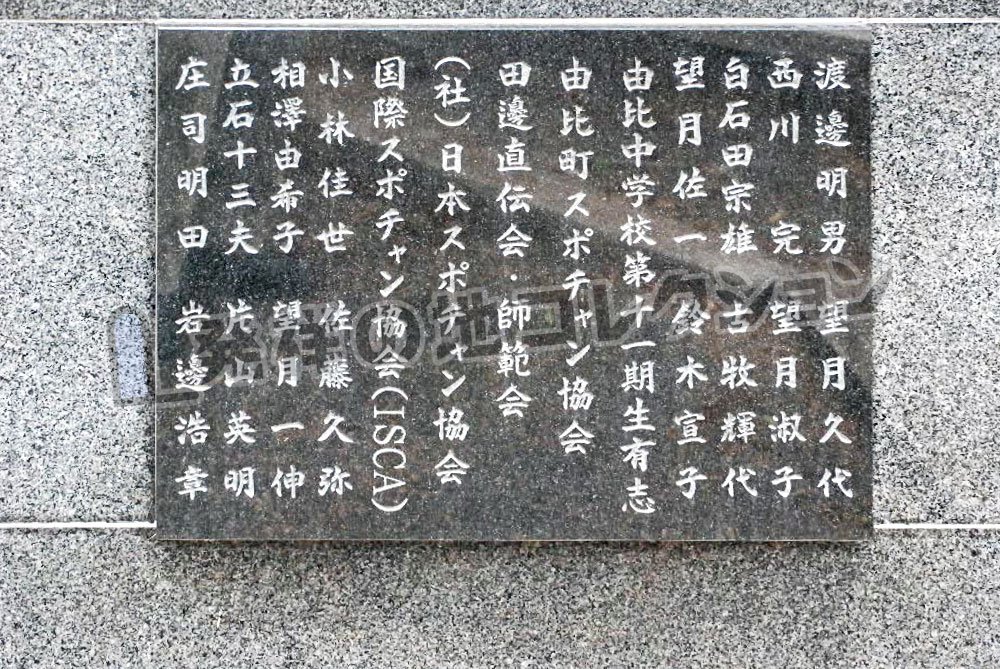 渡邊明男 望月久代
西川完 望月淑子
白石田宗雄 古牧輝代
望月佐一 鈴木宣子
由比中学校第十一期生有志
由比町スポチャン協会
田邊直伝会・師範会
(社)日本スポチャン協会
国際スポチャン協会(ISCA)
小林佳世 佐藤久弥
相澤由希子 望月一伸
立石十三夫 片山英明
庄司明田 岩邊浩章
発祥の地コレクション